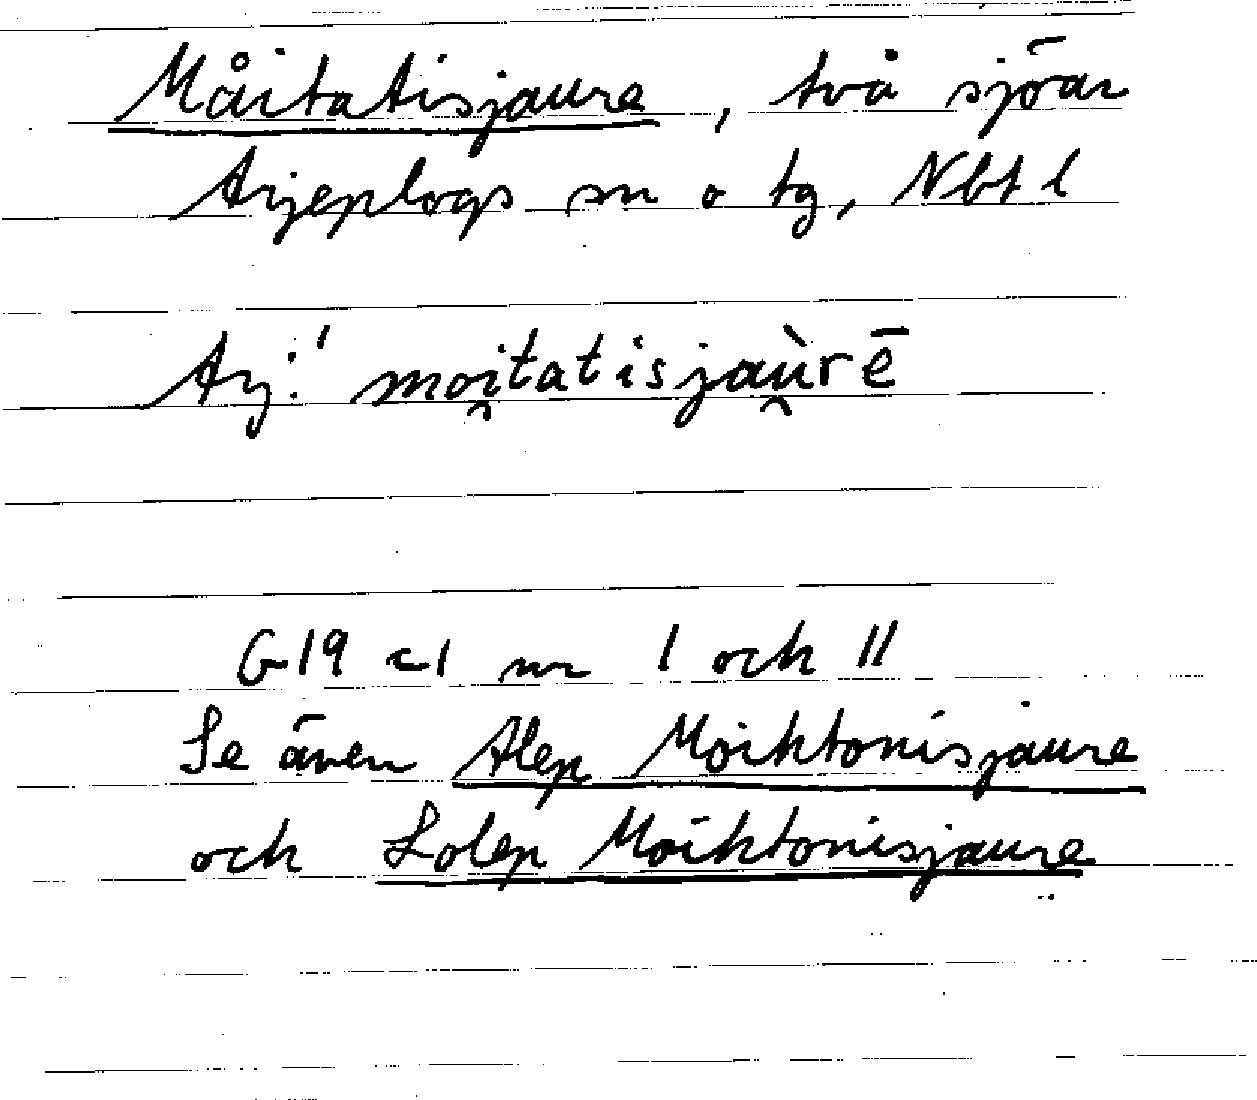 Måitatisjaure, två sjöar
Arjeplogs sn o tg, Nbt l
Arj.' moi̯tatisjaù̯rē
G19 c1 nr 1 och 11
Se även Alep Moiktonisjaure
och Lolep Moiktonisjaure